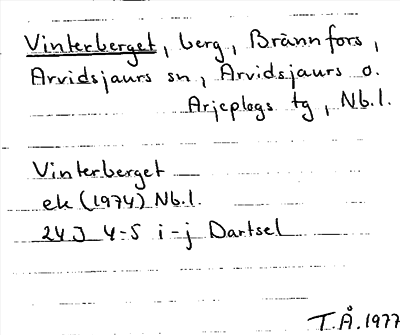 Vinterberget, berg, Brännfors,
Arvidsjaurs sn, Arvidsjaurs o.
Arjeplogs tg, Nb.l.
Vinterberget
ek (1974) Nb.l.
24J 4-5 i-j Dartsel
T.Å. 1977